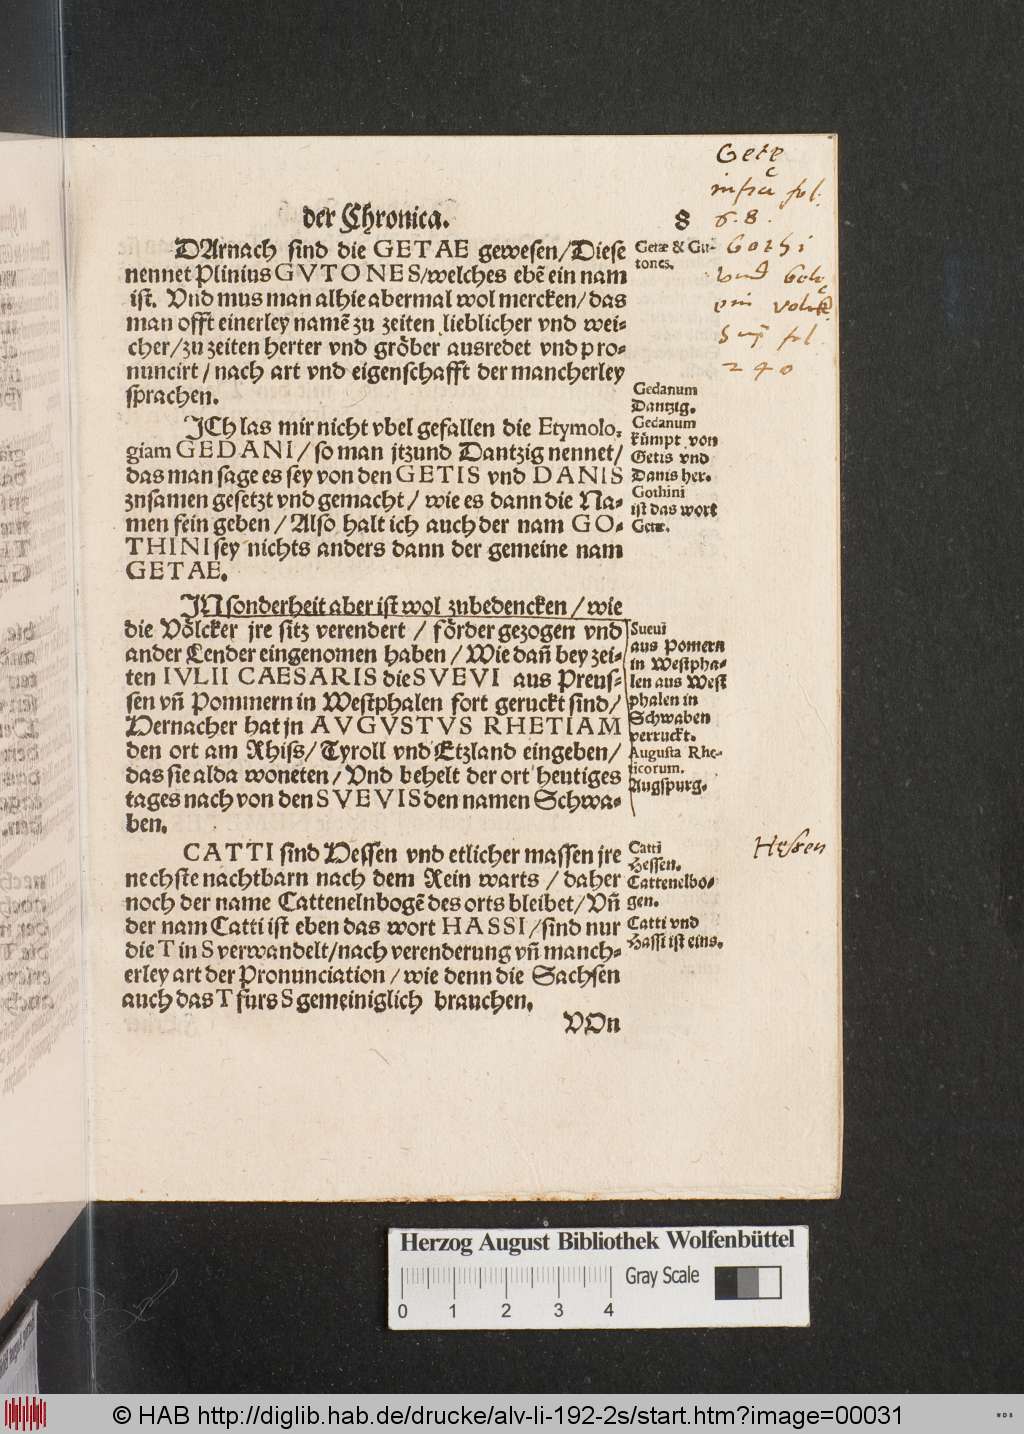 der Chronica.
8
DArnach sind die GETAE gewesen/Diese
nennet Plinius GVTONES/welches ebẽ ein nam
ist. Vnd mus man alhie abermal wol mercken/das
man offt einerley namẽ zu zeiten lieblicher vnd wei-
cher/zu zeiten herter vnd gröber ausredet vnd pro-
nuncirt/nach art vnd eigenschafft der mancherley
sprachen.
Getæ & Gu-
tones.
ICh las mir nicht vbel gefallen die Etymolo-
giam GEDANI/so man jtzund Dantzig nennet/
das man sage es sey von den GETIS vnd DANIS
znsamen gesetzt vnd gemacht/wie es dann die Na-
men fein geben/Also halt ich auch der nam GO-
THINI sey nichts anders dann der gemeine nam
GETAE.
Gedanum
Dantzig.
Gedanum
kümpt von
Getis vnd
Danis her.
Gothini
ist das wort
Getæ.
INsonderheit aber ist wol zubedencken/wie
die Völcker jre sitz verendert/förder gezogen vnd
ander Lender eingenomen haben/Wie dañ bey zei-
ten IVLII CAESARIS die SVEVI aus Preus-
sen vñ Pommern in Westphalen fort geruckt sind/
Hernacher hat jn AVGVSTVS RHETIAM
den ort am Rhiss/Tyroll vnd Etzland eingeben/
das sie alda woneten/Vnd behelt der ort heutiges
tages nach von den SVEVIS den namen Schwa-
ben.
Sueui
aus Pomern
in Westpha-
len aus West
phalen in
Schwaben
verruckt.
Augusta Rhe-
ticorum.
Augspurg.
CATTI sind Hessen vnd etlicher massen jre
nechste nachtbarn nach dem Rein warts/daher
noch der name Cattenelnbogẽ des orts bleibet/Vñ
der nam Catti ist eben das wort HASSI/sind nur
die T in S verwandelt/nach verenderung vñ manch-
erley art der Pronunciation/wie denn die Sachsen
auch das T furs S gemeiniglich brauchen.
Catti
Hessen.
Cattenelbo-
gen.
Catti vnd
Hassi ist eins.
VOn
Getę
infra fol.
68.
Gothi
vnd Getę
ein volck
fol
240
Hessen
Herzog August Bibliothek Wolfenbüttel
0 1 2 3 4
Gray Scale
© HAB http://diglib.hab.de/drucke/alv-li-192-2s/start.htm?image=00031